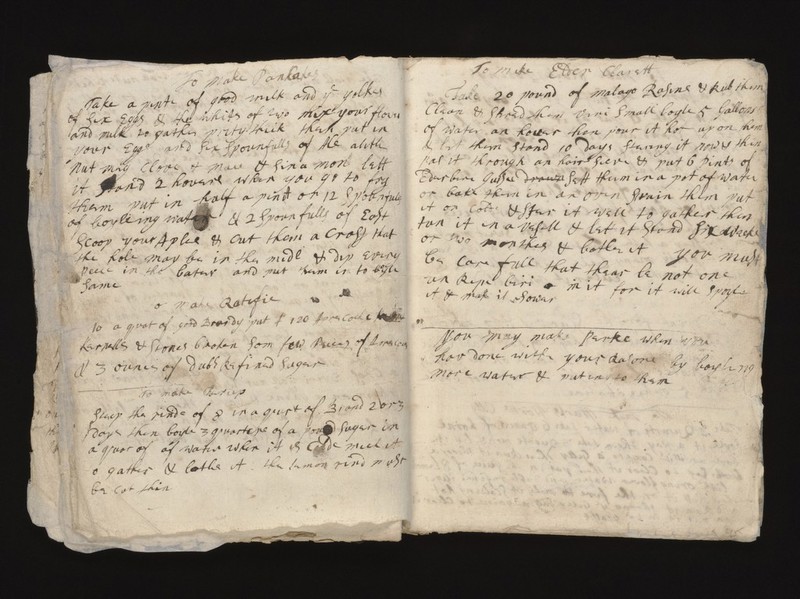 To Make Pankakes
Take a pinte of good milk and ye yolkes
of Six Eggs & the whits of two mix your flower
and milk to gather prity thick then put in
your Eggs and Six Spounfulls of Ale a little
Nut meg Clove & mace & Sinamon lett
it Stand 2 howers when you go to fry
them put in half a pint or 12 Spounfulls
of boyleing water & 2 Spounfulls of East
Scoop your Aples & Cut them a Cross that
the hole may be in the midl & dip Every
peece in the bater and put them in to boyle
Same
o Make Ratifie
To a quart of good Brandy put 120 Apre Cock
kernells & Stones broken Som few peeces of
& 3 ounces of dubl Refined Suger
To make
Steep the rinde of 8 in a qurt of Brand 2 or 3
Days then boyle 3 quarters of a pound Suger in
a quart of water when it is Colde mixe it
o gather & botle it the Lemon rind must
be Cot thin
To Make Elder Clarett
Take 20 pound of malago Rasins & Rub them
Clean & Shred them very Small boyle 5 Gallons
of water an hower then pour it hot upon them
& let them Stand 10 Days Stiring it now & then
pas it through an hair Sieve & put 6 pints of
Elderberi Sett them in a pot of water
or bake them in an oven Strain them put
it in Cold & Stur it well to gather then
tun it in a Vesell & let it Stand Six weeks
or two months & botle it you must
be Care full that thear be not one
un Ripe beri in it for it will Spoyle
it & mak it Sower
You may make Perke when you
hav done withe your Rasons by boyleing
more water & puting to them